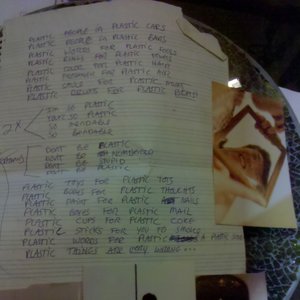 PLASTIC PEOPLE IN PLASTIC CARS
PLASTIC PEOPLE IN PLASTIC BARS
PLASTIC FOR PLASTIC FOOLS
PLASTIC RINGS FOR PLASTIC
PLASTIC COLOR FOR PLASTIC HAIR
PLASTIC FOR PLASTIC AIR
PLASTIC FOR PLASTIC
PLASTIC FOR PLASTIC
2X
SO PLASTIC
SO PLASTIC
SO BENDABLE
SO BENDABLE
DON'T BE PLASTIC
DON'T BE
DON'T BE STUPID
DON'T BE PLASTIC
PLASTIC TOYS FOR PLASTIC TOTS
PLASTIC FOR PLASTIC THOUGHTS
PLASTIC PAINT FOR PLASTIC NAILS
PLASTIC BOXES FOR PLASTIC MAIL
PLASTIC CUPS FOR PLASTIC COKE
PLASTIC STICKS FOR YOU TO SMOKE
PLASTIC WORDS FOR PLASTIC A PLASTIC
PLASTIC THINGS ARE VERY WRONG...